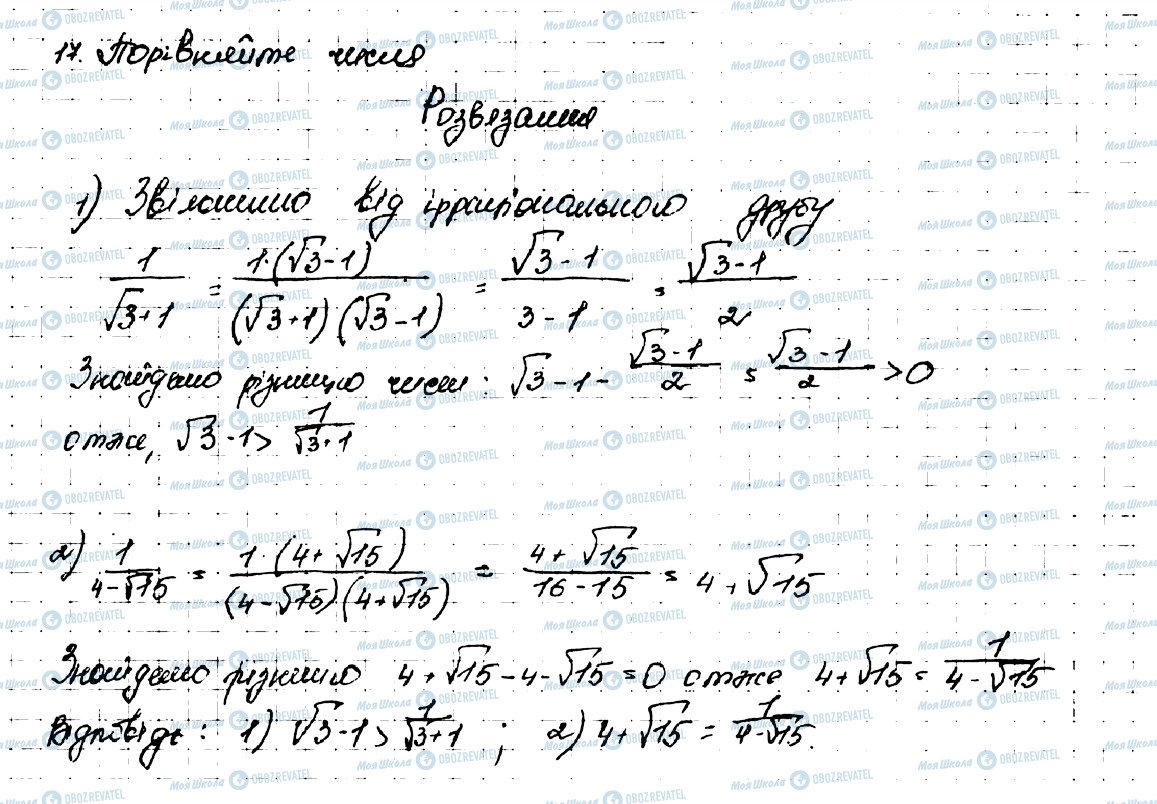 17. Порівняйте числа
Розвязання
1) Звільнимо від ірраціонального дробу
1/(√3+1) = 1·(√3-1)/((√3+1)(√3-1)) = (√3-1)/(3-1) = (√3-1)/2
Знайдемо різницю чисел: √3-1-(√3-1)/2 = (√3-1)/2 >0
отже, √3-1> 1/(√3+1)
2) 1/(4-√15) = 1·(4+√15)/((4-√15)(4+√15)) = (4+√15)/(16-15) = 4+√15
Знайдемо різницю 4+√15-4-√15=0 отже 4+√15= 1/(4-√15)
Відповідь: 1) √3-1> 1/(√3+1) ; 2) 4+√15 = 1/(4-√15).
Моя Школа OBOZREVATEL